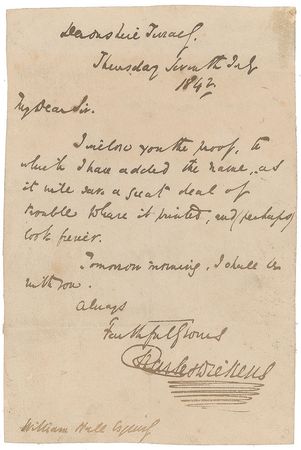 Devonshire Terrace.
Thursday Seventh July
1842
My Dear Sir.
I inclose you the proof, to
which I have added the names, as
it will save a great deal of
trouble to have it printed, and (perhaps)
look fewer.
Tomorrow morning, I shall be
with you.
Always
Faithfully Yours
Charles Dickens
William Hall Esquire